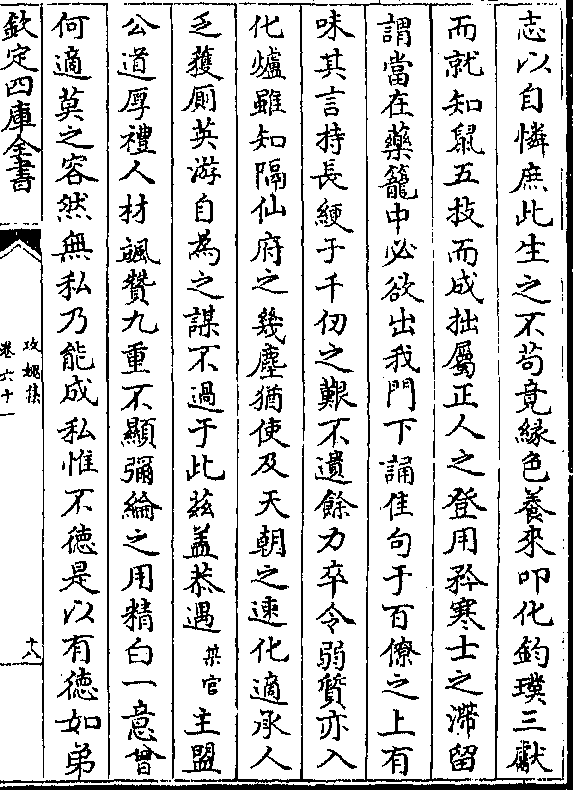 志以自憐庶此生之不苟竟緣色養來叩化鈞璞三獻
而就知鼠五技而成拙屬正人之登用矜寒士之滯留
謂當在藥籠中必欲出我門下誦佳句于百僚之上有
味其言持長綆于千仞之艱不遺餘力卒令弱質亦入
化爐雖知隔仙府之幾塵猶使及天朝之速化適承人
乏獲厠英游自為之謀不過于此茲蓋恭遇某官主盟
公道厚禮人材諷贊九重不顯彌綸之用精白一意曾
何適莫之容然無私乃能成私惟不德是以有德如弟
欽定四庫全書
攻媿集
卷六十一
十八